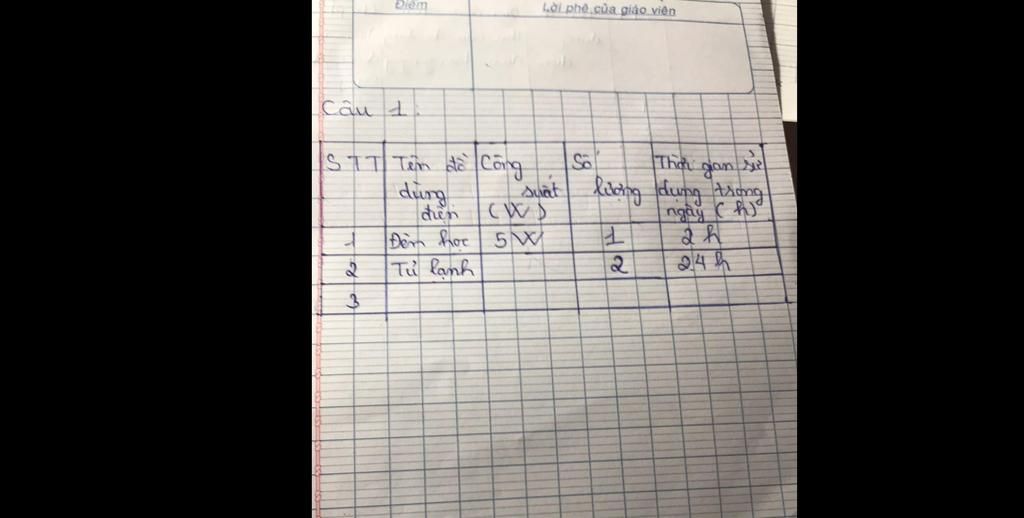 Điểm Lời phê của giáo viên
Câu 1:
STT Tên đồ dùng điện Công suất (W) Số lượng Thời gian sử dụng trong ngày (h)
1 Đèn học 5W 1 2h
2 Tủ lạnh 2 24h
3